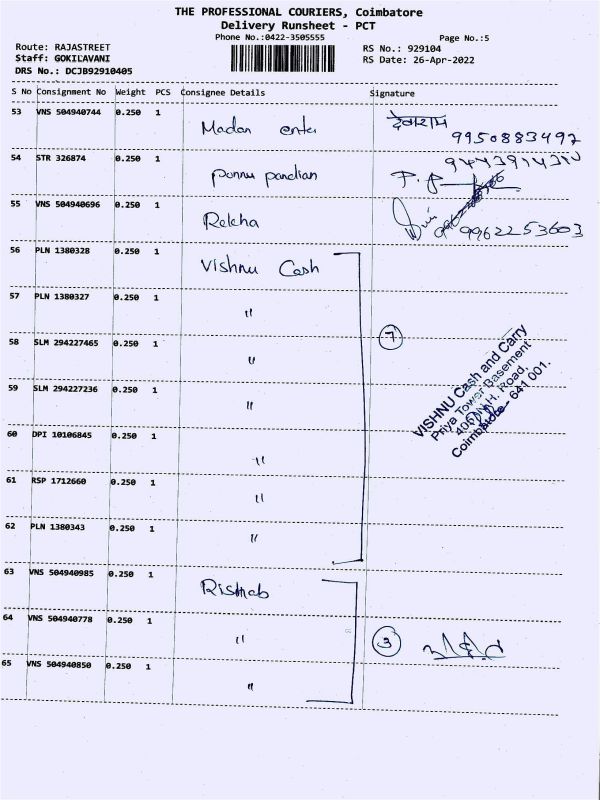 THE PROFESSIONAL COURIERS, Coimbatore
Delivery Runsheet - PCT
Phone No.:0422-3505555
Page No.:5
Route: RAJASTREET
RS No.: 929104
Staff: GOKILAVANI
RS Date: 26-Apr-2022
DRS No.: DCJB92910405
S No Consignment No Weight PCS Consignee Details Signature
53 VNS 504940744 0.250 1 Madan enter देवाराम
9950883497
54 STR 326874 0.250 1 Ponnu pandian
55 VNS 504940696 0.250 1 Rekha 9962253603
56 PLN 1380328 0.250 1 Vishnu Cash
57 PLN 1380327 0.250 1 "
58 SLM 294227465 0.250 1 "
7
59 SLM 294227236 0.250 1 "
VISHNU Cash and Carry
Priya Tower Basement
N.H. Road,
Coimbatore - 641 001.
60 DPI 10106845 0.250 1 "
61 RSP 1712660 0.250 1 "
62 PLN 1380343 0.250 1 "
63 VNS 504940985 0.250 1 Rishab
64 VNS 504940778 0.250 1 "
3
65 VNS 504940850 0.250 1 "